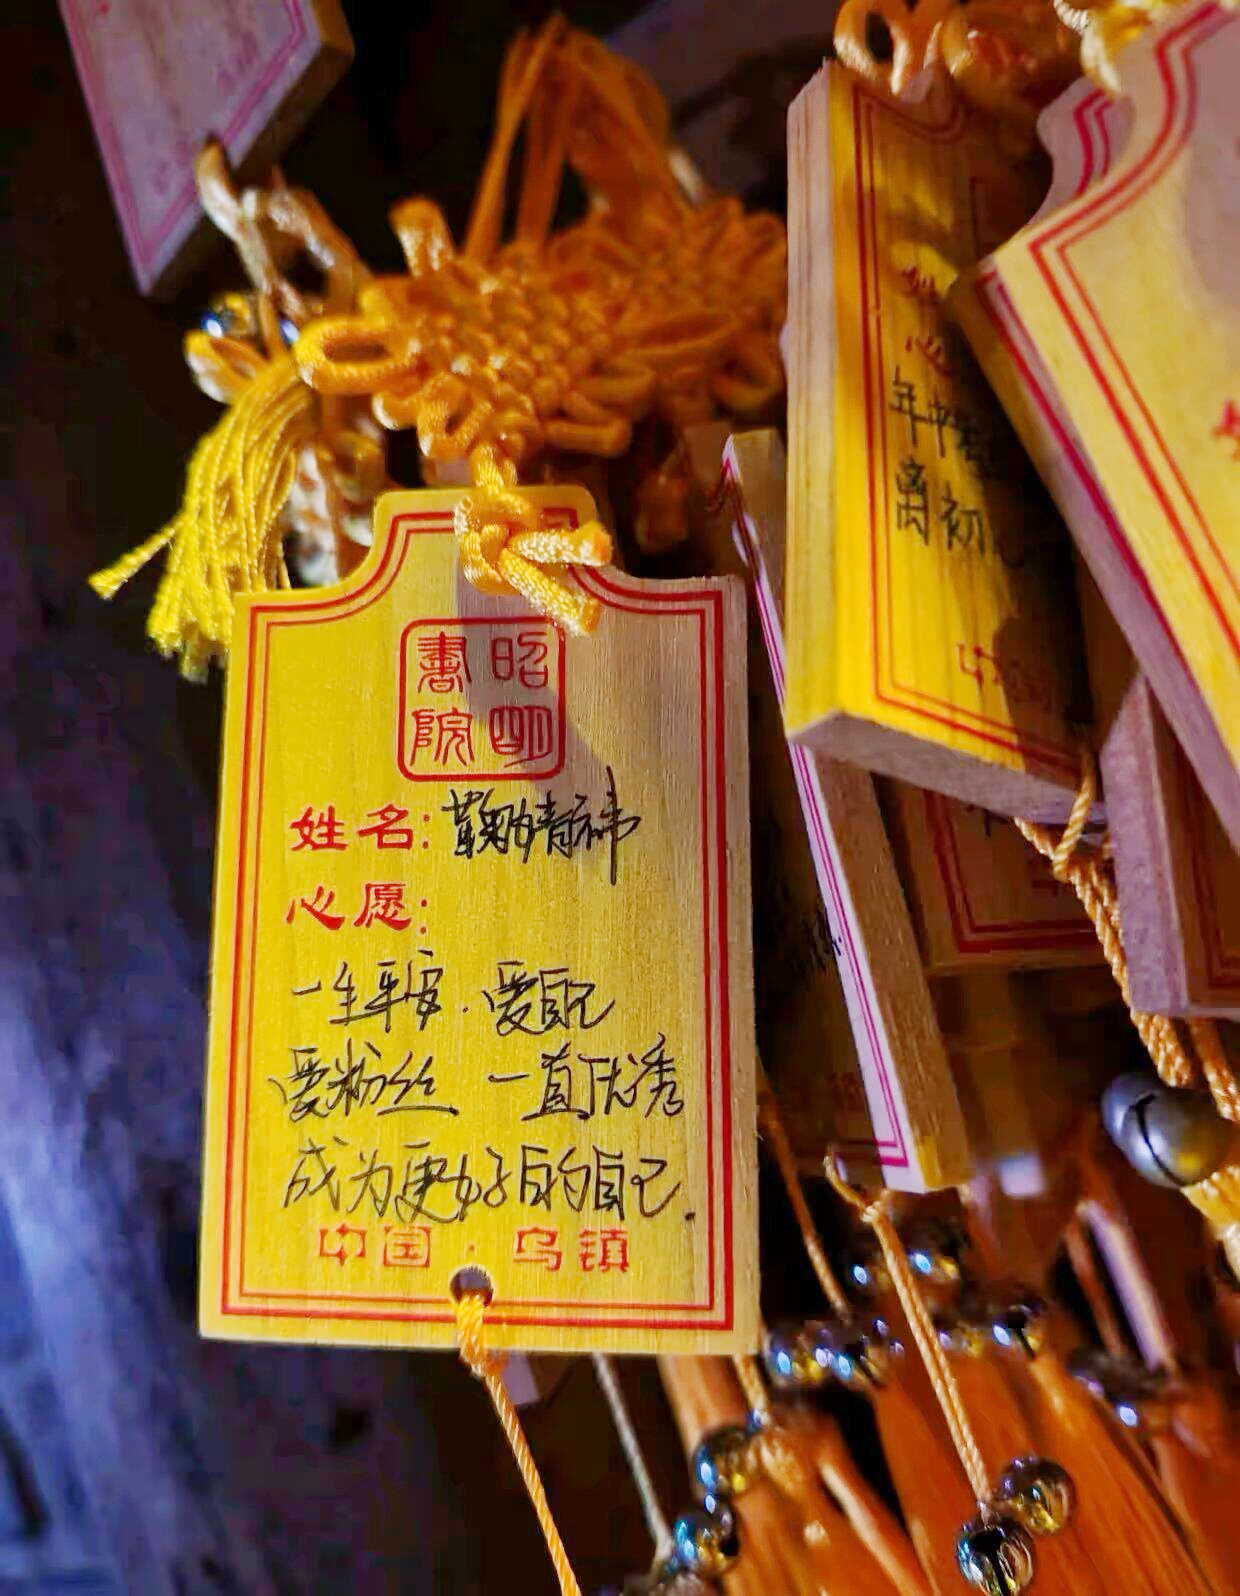 昭明
書院
姓名：鞠婧祎
心愿：
一生平安.爱自己
爱粉丝 一直优秀
成为更好自的自己.
中国·乌镇
姓
心
年中
离初心
中国